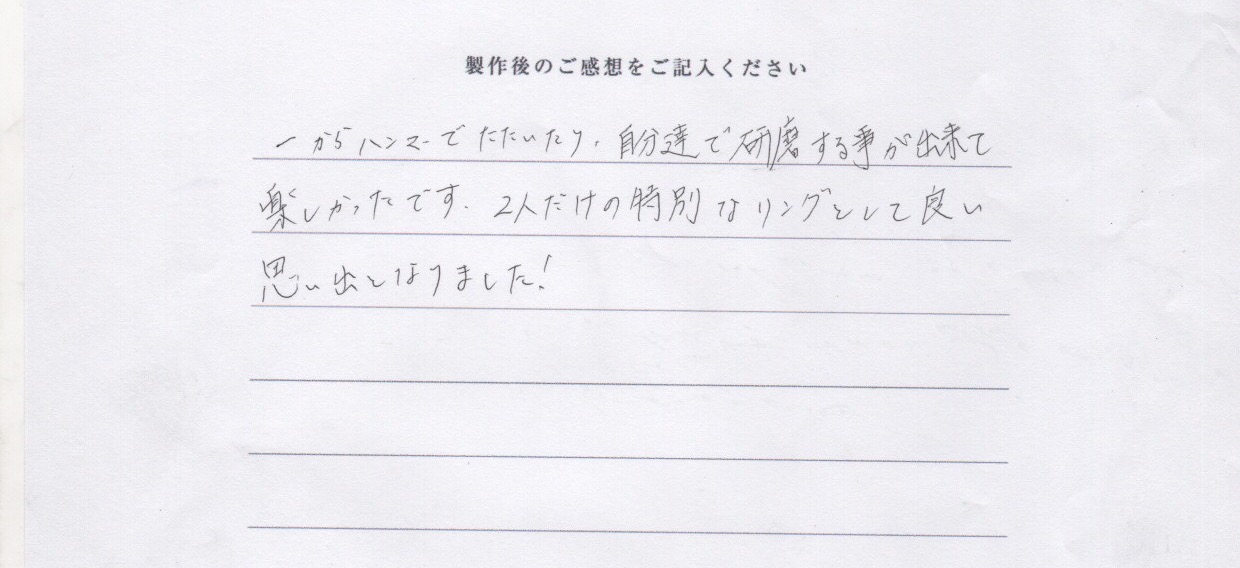 製作後のご感想をご記入ください
一からハンマーでたたいたり、自分達で研磨する事が出来て
楽しかったです。2人だけの特別なリングとして良い
思い出となりました!